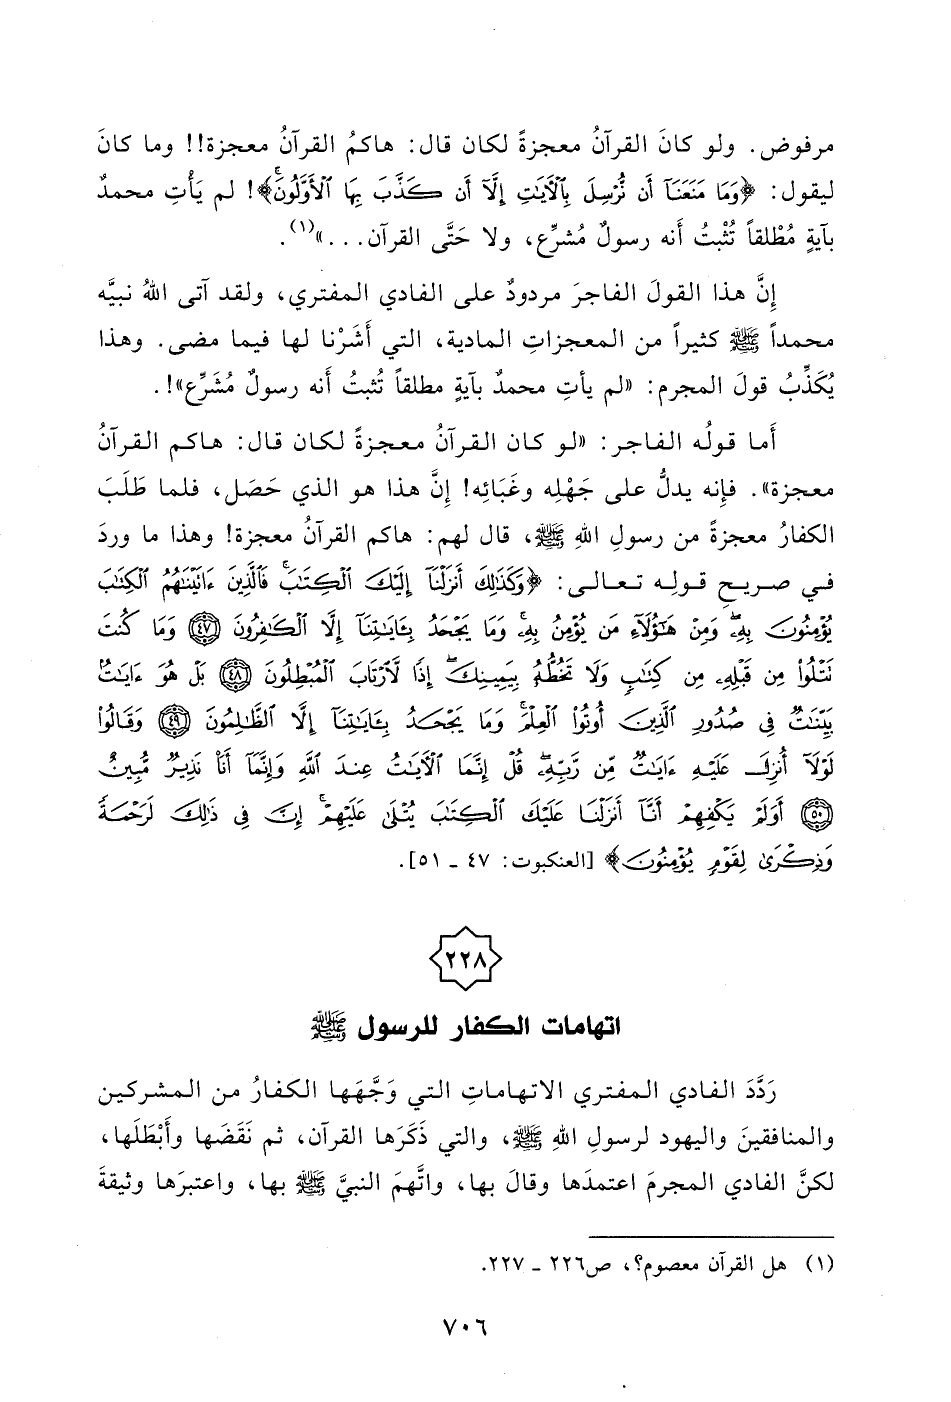 مرفوض. ولو كانَ القرآنُ معجزةً لكان قال: هاكمُ القرآنُ معجزة!! وما كانَ
ليقول: ﴿وَمَا مَنَعَنَآ أَن نُّرْسِلَ بِٱلْأَيَٰتِ إِلَّآ أَن كَذَّبَ بِهَا ٱلْأَوَّلُونَ﴾! لم يَأْتِ محمدٌ
بآيةٍ مُطْلقاً تُثْبتُ أنه رسولٌ مُشرِّع، ولا حَتَّى القرآن...»(١).
إنَّ هذا القولَ الفاجرَ مردودٌ على الفادي المفتري، ولقد آتى اللهُ نبيَّه
محمداً ﷺ كثيراً من المعجزاتِ المادية، التي أَشَرْنا لها فيما مضى. وهذا
يُكَذِّبُ قولَ المجرم: «لم يأتِ محمدٌ بآيةٍ مطلقاً تُثبتُ أنه رسولٌ مُشَرِّع»!.
أَما قولُه الفاجر: «لو كان القرآنُ معجزةً لكان قال: هاكم القرآنُ
معجزة». فإِنه يدلُّ على جَهْلِه وغَبَائِه! إنَّ هذا هو الذي حَصَل، فلما طَلَبَ
الكفارُ معجزةً من رسولِ اللهِ ﷺ، قال لهم: هاكم القرآنُ معجزة! وهذا ما وردَ
في صريحِ قوله تعالى: ﴿وَكَذَٰلِكَ أَنزَلْنَآ إِلَيْكَ ٱلْكِتَٰبَ ۚ فَٱلَّذِينَ ءَاتَيْنَٰهُمُ ٱلْكِتَٰبَ
يُؤْمِنُونَ بِهِۦ ۖ وَمِنْ هَٰٓؤُلَآءِ مَن يُؤْمِنُ بِهِۦ ۚ وَمَا يَجْحَدُ بِـَٔايَٰتِنَآ إِلَّا ٱلْكَٰفِرُونَ ﴿٤٧﴾ وَمَا كُنتَ
تَتْلُوا۟ مِن قَبْلِهِۦ مِن كِتَٰبٍ وَلَا تَخُطُّهُۥ بِيَمِينِكَ ۖ إِذًا لَّٱرْتَابَ ٱلْمُبْطِلُونَ ﴿٤٨﴾ بَلْ هُوَ ءَايَٰتٌۢ
بَيِّنَٰتٌ فِى صُدُورِ ٱلَّذِينَ أُوتُوا۟ ٱلْعِلْمَ ۚ وَمَا يَجْحَدُ بِـَٔايَٰتِنَآ إِلَّا ٱلظَّٰلِمُونَ ﴿٤٩﴾ وَقَالُوا۟
لَوْلَآ أُنزِلَ عَلَيْهِ ءَايَٰتٌ مِّن رَّبِّهِۦ ۖ قُلْ إِنَّمَا ٱلْأَيَٰتُ عِندَ ٱللَّهِ وَإِنَّمَآ أَنَا۠ نَذِيرٌ مُّبِينٌ
﴿٥٠﴾ أَوَلَمْ يَكْفِهِمْ أَنَّآ أَنزَلْنَا عَلَيْكَ ٱلْكِتَٰبَ يُتْلَىٰ عَلَيْهِمْ ۚ إِنَّ فِى ذَٰلِكَ لَرَحْمَةً
وَذِكْرَىٰ لِقَوْمٍ يُؤْمِنُونَ﴾ [العنكبوت: ٤٧ ـ ٥١].
٢٢٨
اتهامات الكفار للرسول ﷺ
رَدَّدَ الفادي المفتري الاتهاماتِ التي وَجَّهَها الكفارُ من المشركين
والمنافقينَ واليهود لرسولِ اللهِ ﷺ، والتي ذَكَرَها القرآن، ثم نَقَضَها وأَبْطَلَها،
لكنَّ الفادي المجرمَ اعتمدَها وقالَ بها، واتَّهمَ النبيَّ ﷺ بها، واعتبرَها وثيقةَ
(١) هل القرآن معصوم؟، ص٢٢٦ ـ ٢٢٧.
٧٠٦